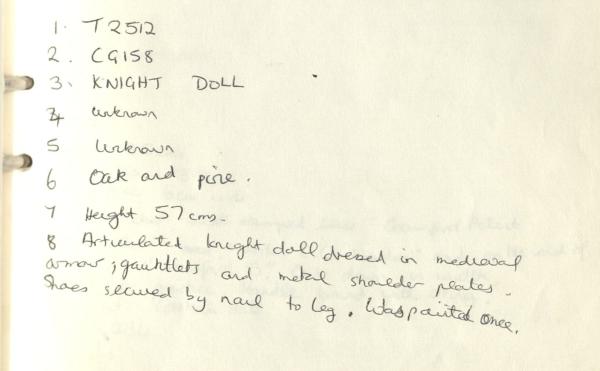 1. T2512
2. CG158
3. KNIGHT DOLL
4 unknown
5 Unknown
6 Oak and pine.
7 Height 57 cms.
8 Articulated knight doll dressed in mediaeval
armour, gauntlets and metal shoulder plates.
Shoes secured by nail to leg. Was painted once.